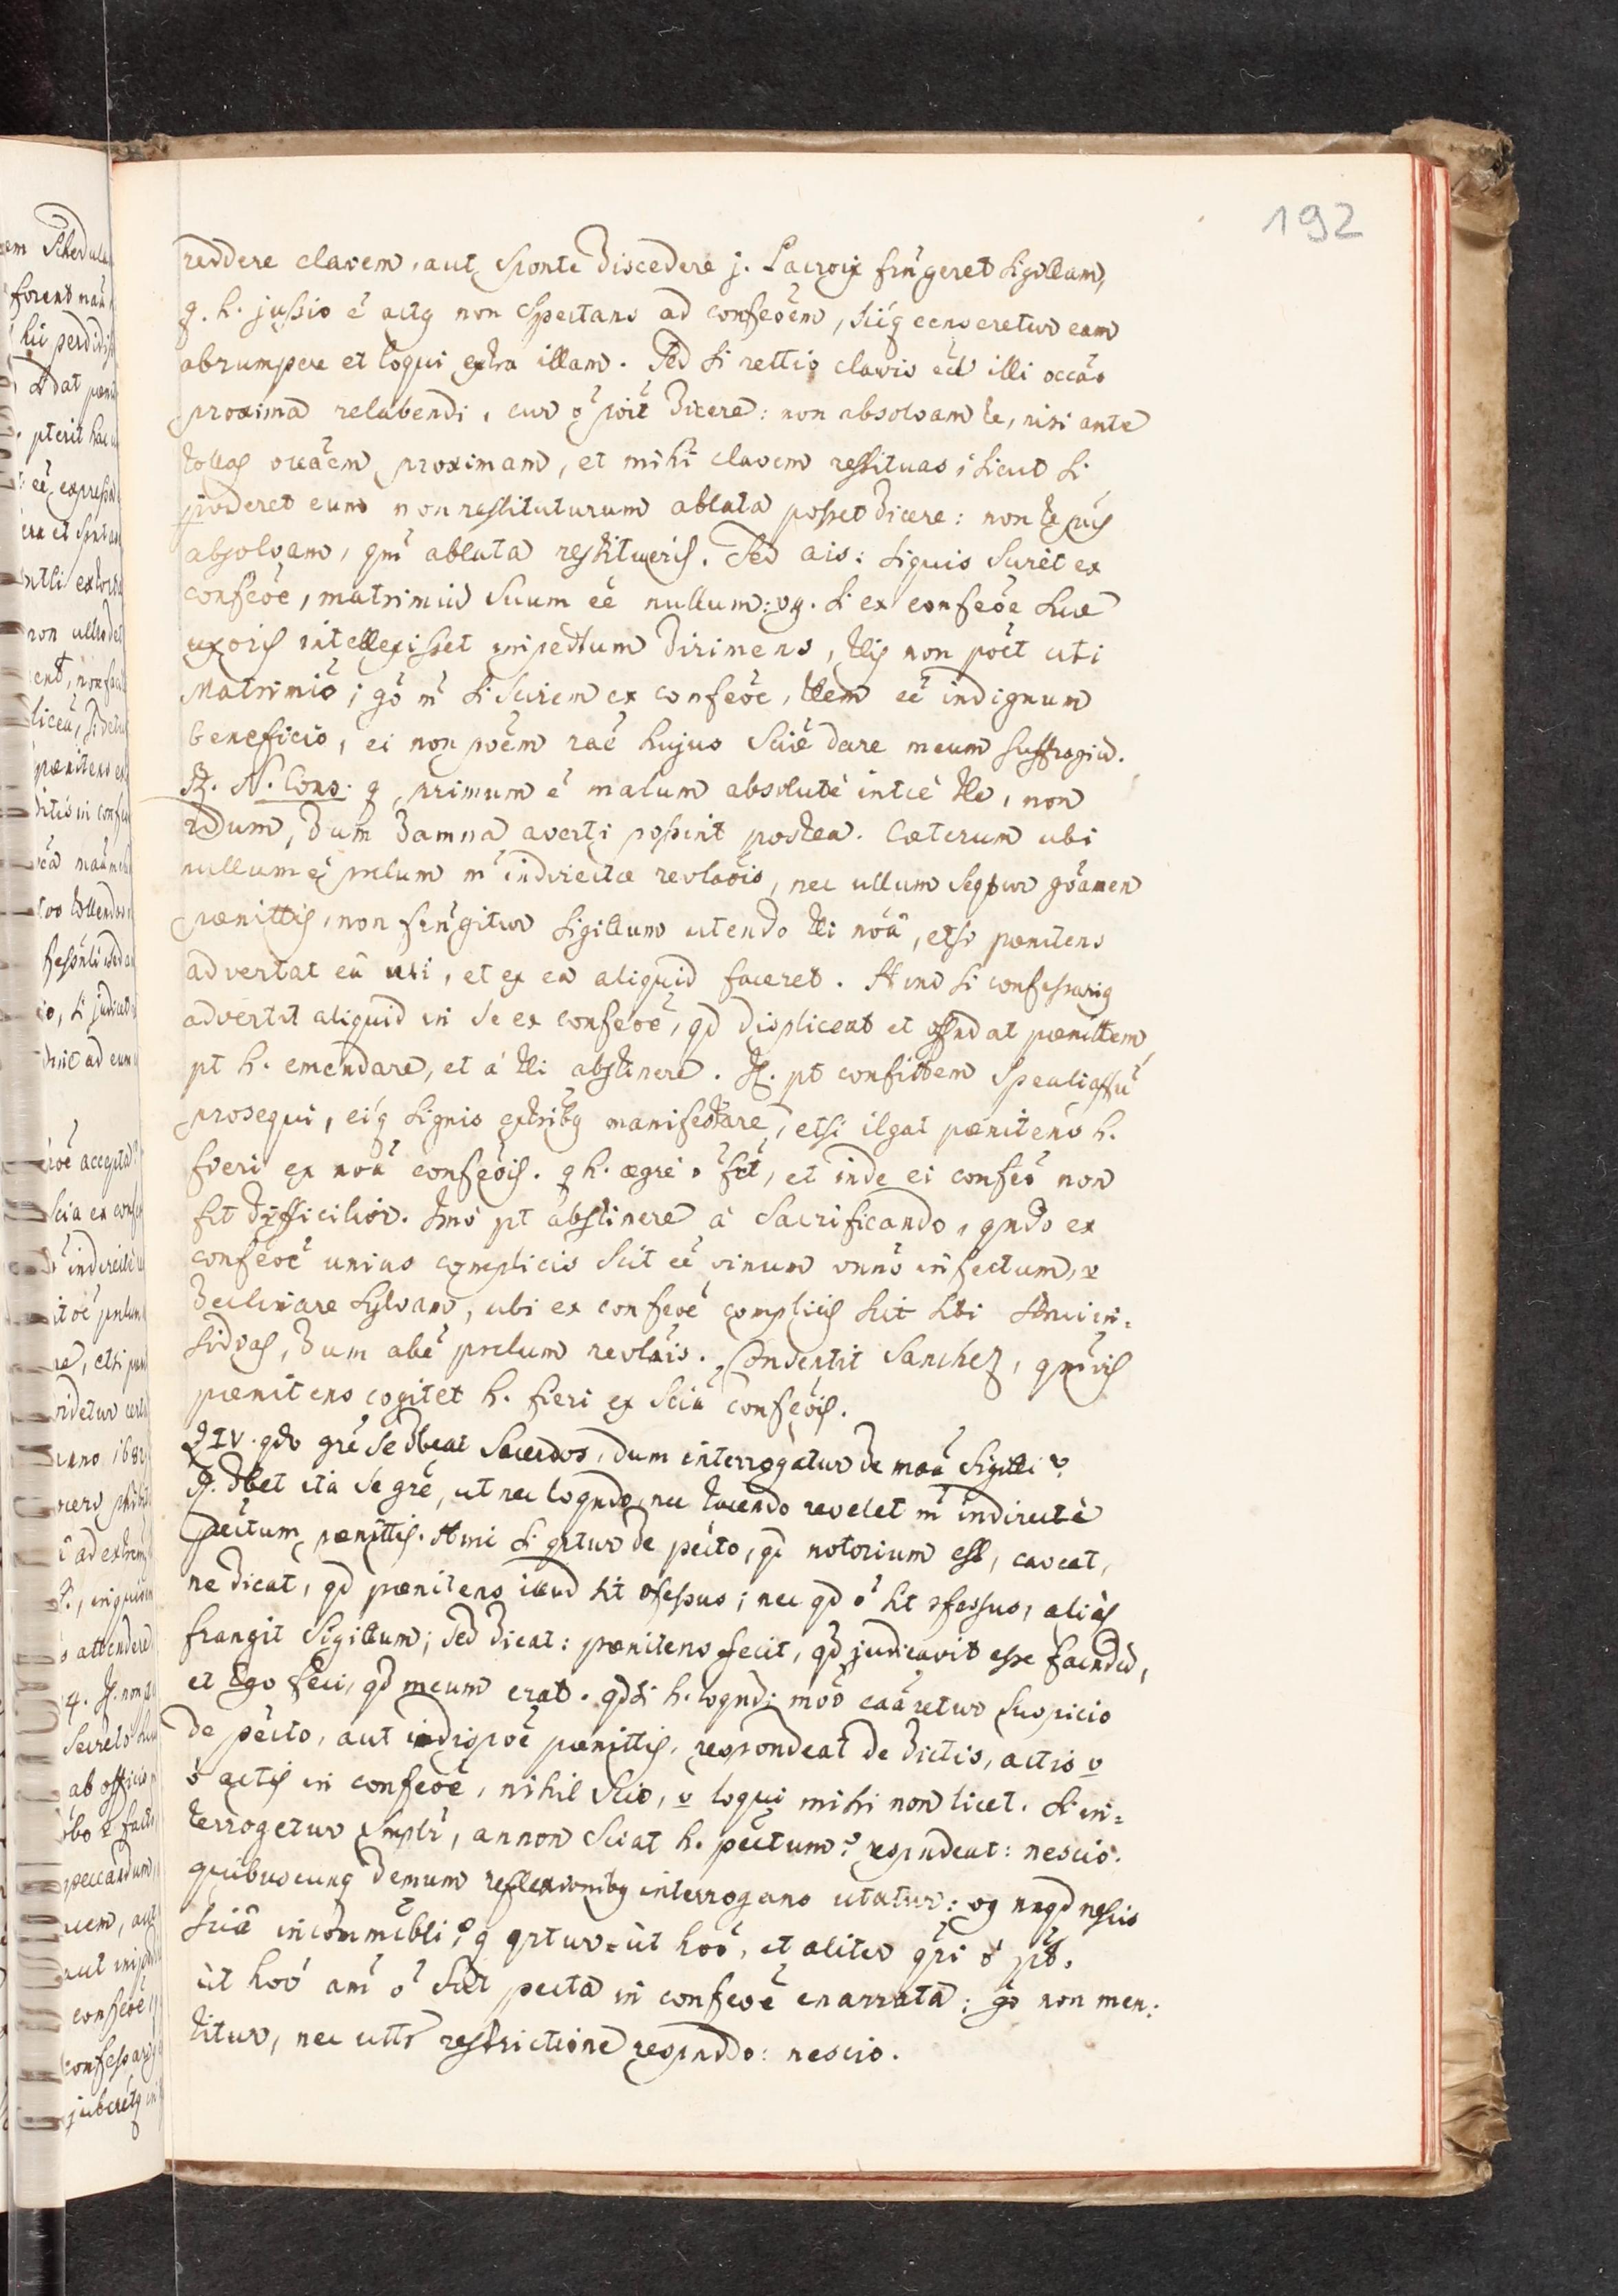 192
reddere clavem, aut sponte discedere j. Lacroix frūgeret sigillum,
q. h. jussio ē actq non spectans ad confeōem, sicq censeretur eam
abrumpere et loqui extra illam. Sed si rettio clavis eēt illi occāo
proxima relabendi, cur ō poīt dicere: non absolvam te, nisi ante
tollas occāem proximam, et mihi clavem restituas; sicut si
prōderet eum non restituturum ablata posset dicere: non te priūs
absolvam, qm̄ ablata restitueris. Sed ais: siquis sciret ex
confeōe, matrimiū suum eē nullum: vg. si ex confeōe suæ
uxoris intellexisset impedtum dirimens, tlis non poēt uti
Matrimīo; gō m̄ si scirem ex confeōe, tlem eē indignum
beneficio, ei non poēm raē hujus sciæ dare meum suffragiū.
R. N. Cons. q primum ē malum absolutè intcē tle, non
2dum, dum damna averti possint postea. Cæterum ubi
nullum ē prclum m̄ indirectæ revlaōis, nec ullum seqtur gōamen
pænittis, non frūgitur sigillum utendo tli nōâ, etsi pænitens
advertat eâ uti, et ex ea aliquid faceret. Hinc si confessariq
advertit aliquid in se ex confeōe, qd displiceat et offndat pænittem,
pt h. emendare, et à tli abstinere. It. pt confittem speciali affū
prosequi, eiq signis extribq manifestare, etsi itlgat pænitens h.
fieri ex nōâ confeōis. q h. ægrè ō fēt, et inde ei confeō non
fit difficilior. Imò pt abstinere à sacrificando, qndo ex
confeōe unius complicis scit eē vinum vnnō infectum, v
declinare sylvam, ubi ex confeōe complicis scit sibi strui in=
sidias, dum absē prclum revlaōis. Consentit Sanchez, qmvis
pænitens cogitet h. fieri ex sciâ confeōis.
Q IV. qdo grē se dbeat Sacerdos, dum interrogatur de maâ Sigilli?
R. dbet ità se grē, ut nec loqndo, nec tacendo revelet m̄ indirectè
pectum pænittis. Hinc si qrtur de pecto, qd notorium est, caveat,
ne dicat, qd pænitens illud sit ɔfessus; nec qd ō sit ɔfessus, aliàs
frangit Sigillum; sed dicat: pænitens fecit, qd judicavit esse faciendū,
et Ego feci, qd meum erat. qdsi h. loqndi mōo caāretur suspicio
de pecto, aut indispoē pænittis, respondeat de dictis, actis v
ō actis in confeōe, nihil scio, v loqui mihi non licet. Si in=
terrogetur smplr, annon sciat h. pectum? respndeat: nescio.
quibuscunq demum reflexionibq interrogans utatur: vg nnqd nescis
sciâ incōmmcbli? q qrtur ut hoō, et aliter qri ō pt.
ùt hoō am̄ ō scit pecta in confeōe enarrata; gō non men:
titur, nec uttr restrictione respnddo: nescio.